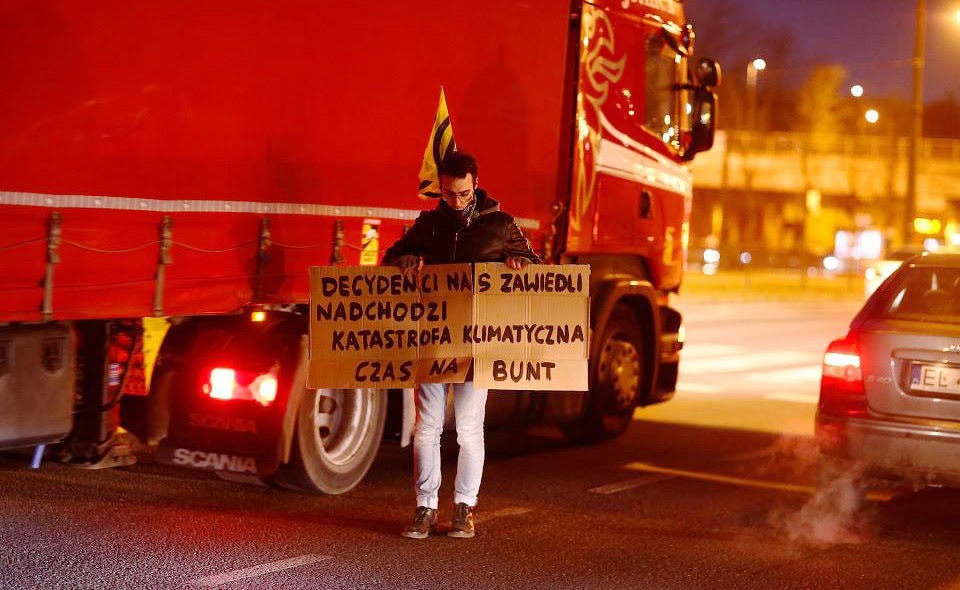 DECYDENCI NAS ZAWIEDLI
NADCHODZI
KATASTROFA KLIMATYCZNA
CZAS NA BUNT
SCANIA
SCANIA
S40
EL